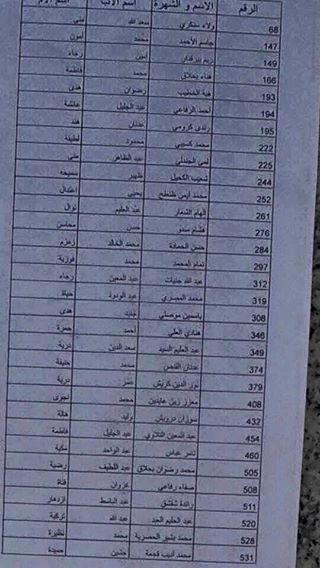 الرقم الاسم و الشهرة اسم الأب اسم الأم
68 ولاء سنكري سعد الله منى
147 جاسم الأحمد محمد أمون
149 ريم بيرقدار أمين رجاء
166 هناء بحلاق محمد فاطمة
193 هبة الخطيب رضوان هدى
194 أحمد الرفاعي عبد الجليل عائشة
195 رندى كرومي عدنان هند
222 محمد كسيبي محمود لطيفة
225 لمى الجندلي عبد الظاهر منى
244 نجيب الكحيل ظهير سميحه
252 محمد أيمن طنطح يحيى اعتدال
261 الهام الشعار عبد الحليم نوال
276 هشام سمو حسن محاسن
284 حسن الحمادة محمد الخالد زمزم
297 تمام المحمد محمد فوزية
312 عبد الله جنيات عبد المعين رجاء
319 محمد المصري عبد الودود حياة
308 ياسمين موصلي خالد هدى
346 هنادي العلي أحمد حمرة
349 عبد الحليم السيد سعد الدين درية
374 عدنان محمد حنيفة
379 نور الدين كريش نصر درية
408 معتز زين عابدين محمد نجوى
432 سوزان درويش وليد هالة
454 عبد المعين التلاوي عبد الجليل فاطمة
460 ثامر عباس عبد الواحد مكية
505 محمد رضوان بحلاق عبد اللطيف رضية
508 صفاء رفاعي غزوان قناة
511 رائدة شقشق عبد الباسط ازدهار
520 عبد الحليم العبد عبد الله تركية
528 محمد بشير الحصرية محمد نظيرة
531 محمد أديب قجمة حسين حميدة